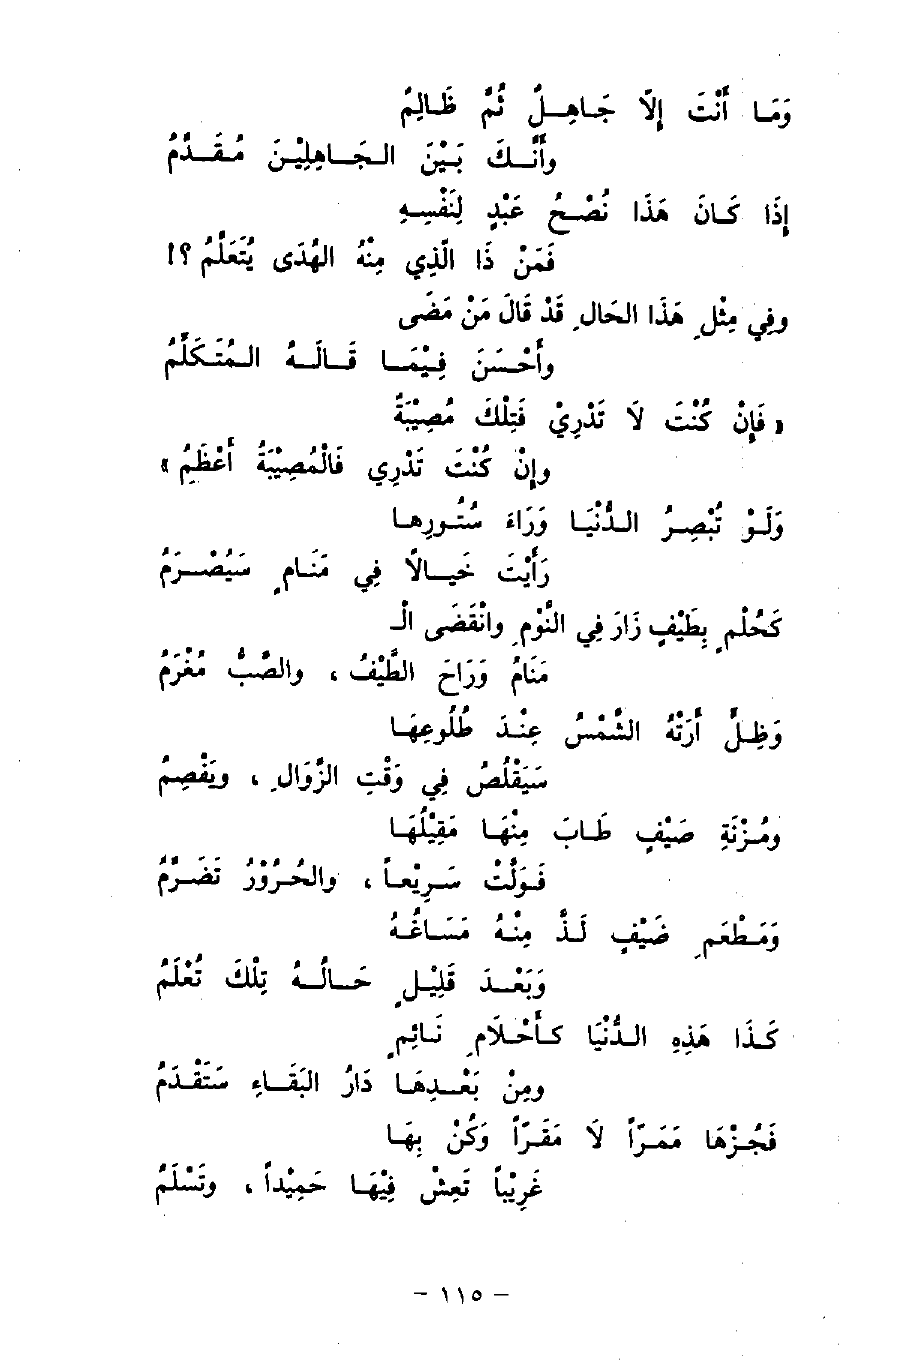 وَمَا أَنْتَ إِلَّا جَاهِلٌ ثُمَّ ظَالِمٌ
وأَنَّكَ بَيْنَ الجَاهِلِيْنَ مُقَدَّمُ
إِذَا كَانَ هَذَا نُصْحُ عَبْدٍ لِنَفْسِهِ
فَمَنْ ذَا الَّذِي مِنْهُ الهُدَى يُتَعَلَّمُ ؟!
وفِي مِثْلِ هَذَا الحَالِ قَدْ قَالَ مَنْ مَضَى
وأَحْسَنَ فِيْمَا قَالَهُ المُتَكَلِّمُ
« فَإِنْ كُنْتَ لَا تَدْرِيْ فَتِلْكَ مُصِيْبَةٌ
وإِنْ كُنْتَ تَدْرِي فَالْمُصِيْبَةُ أَعْظَمُ »
وَلَوْ تُبْصِرُ الدُّنْيَا وَرَاءَ سُتُورِهَا
رَأَيْتَ خَيَالًا فِي مَنَامٍ سَيُصْرَمُ
كَحُلْمٍ بِطَيْفٍ زَارَ فِي النَّوْمِ وانْقَضَى الْـ
مَنَامُ وَرَاحَ الطَّيْفُ ، والصَّبُّ مُغْرَمُ
وَظِلٍّ أَرَتْهُ الشَّمْسُ عِنْدَ طُلُوعِهَا
سَيَقْلُصُ فِي وَقْتِ الزَّوَالِ ، ويَفْصِمُ
ومُزْنَةِ صَيْفٍ طَابَ مِنْهَا مَقِيْلُهَا
فَوَلَّتْ سَرِيْعاً ، والحُرُوْرُ تَضَرَّمُ
وَمَطْعَمِ ضَيْفٍ لَذَّ مِنْهُ مَسَاغُهُ
وَبَعْدَ قَلِيْلٍ حَالُهُ تِلْكَ تُعْلَمُ
كَذَا هَذِهِ الدُّنْيَا كَأَحْلَامِ نَائِمٍ
ومِنْ بَعْدِهَا دَارُ البَقَاءِ سَتَقْدَمُ
فَجُزْهَا مَمَرّاً لَا مَقَرّاً وَكُنْ بِهَا
غَرِيْباً تَعِشْ فِيْهَا حَمِيْداً ، وتَسْلَمُ
- ١١٥ -